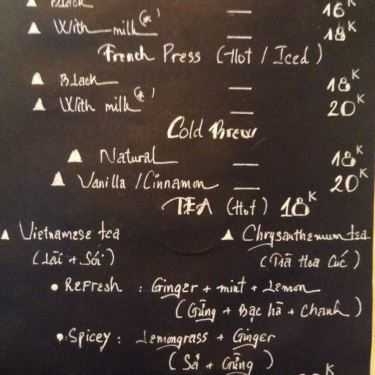 ▲ Black — 16K
▲ With milk — 18K
French Press (Hot / Iced)
▲ Black — 18K
▲ With milk — 20K
Cold Brew
▲ Natural — 18K
▲ Vanilla / Cinnamon — 20K
TEA (Hot) 18K
▲ Vietnamese tea ▲ Chrysanthemum tea
(Lài + Sói) (Trà Hoa Cúc)
• Refresh : Ginger + mint + Lemon
(Gừng + Bạc hà + Chanh)
• Spicey : Lemongrass + Ginger
(Sả + Gừng)
K